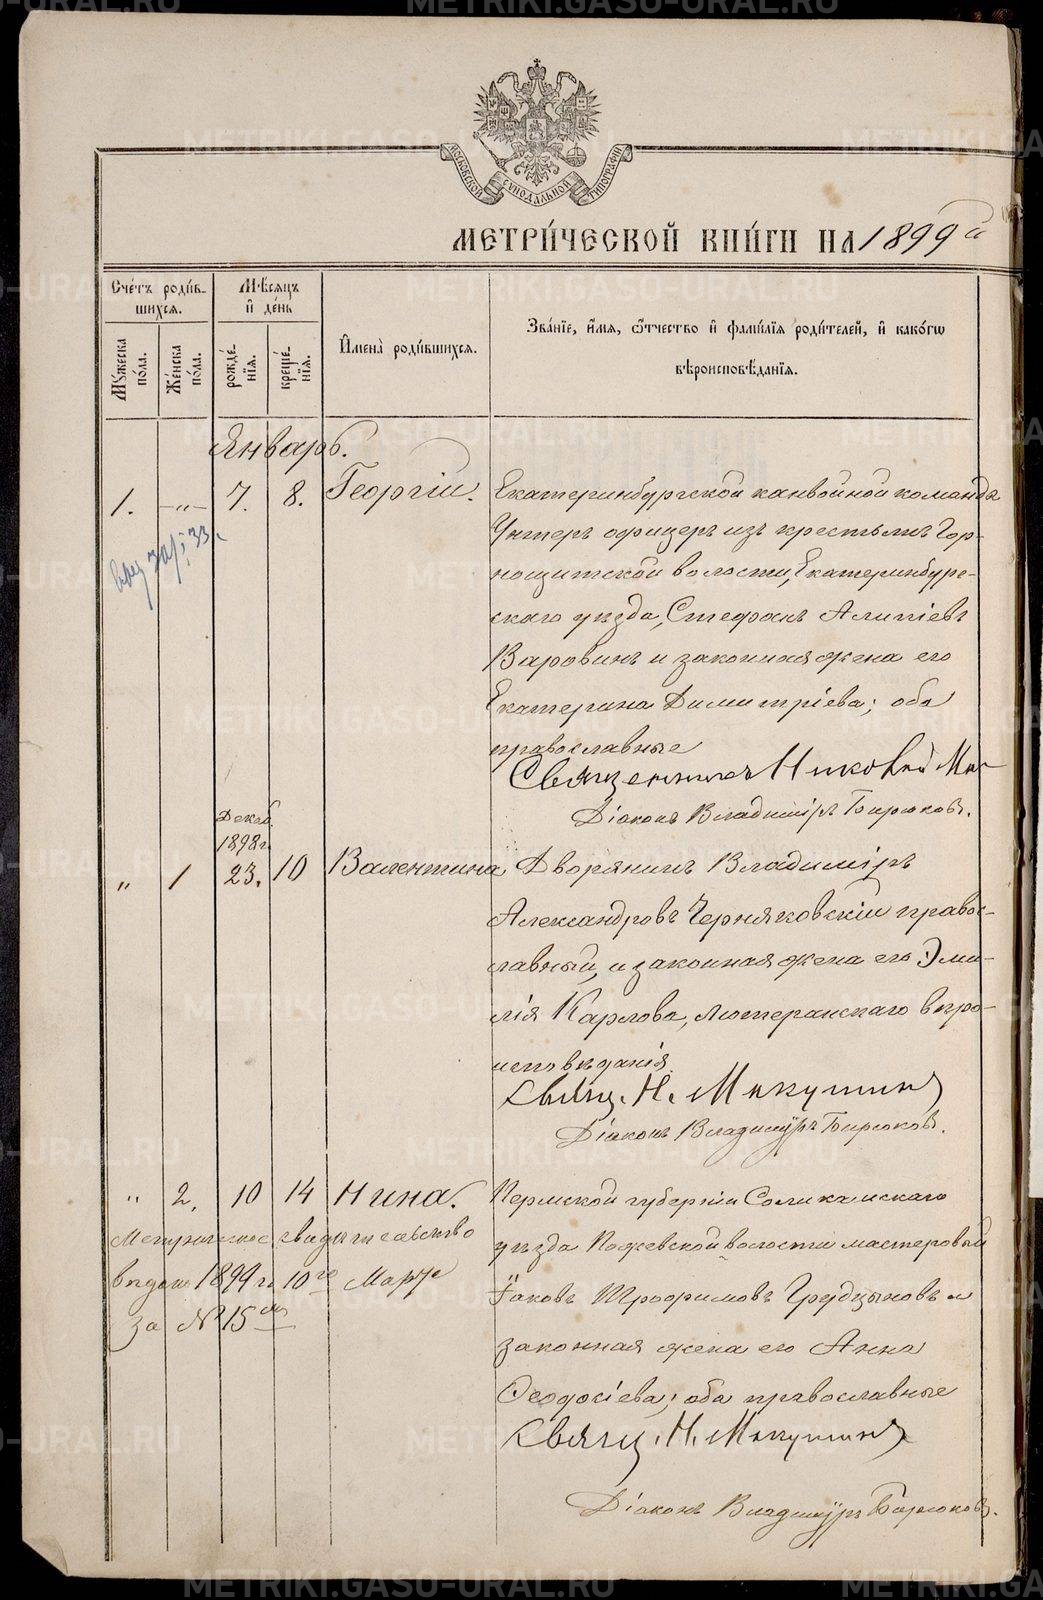 МОСКОВСКОЙ СѴНОДАЛЬНОЙ ТИПОГРАФІИ
МЕТРИ́ЧЕСКОЙ КНИ́ГИ НА 1899й
Сче́тъ роди́в-
шихся.
Мѣ́сяцъ
и҆ де́нь
Му́жеска по́ла.
Же́нска по́ла.
рожде́-
нїя.
креще́-
нїя.
И҆мена̀ роди́вшихся.
Зва́нїе, и҆́мя, ѻ҆́тчество и҆ фами́лїя роди́телей, и҆ како́гѡ
вѣроисповѣ́данїя.
Январь.
1. —„— 7. 8. Георгій. Екатеринбургской канвойной команды
Унтеръ офицеръ изъ крестьянъ Гор-
нощитской волости, Екатеринбург-
скаго уѣзда, Стефанъ Алипіевъ
Варовинъ и законная жена его
Екатерина Димитріева; оба
православные
Священникъ Николай Ми
Діаконъ Владиміръ Бирюковъ.
Декаб.
1898 г.
„ 1 23. 10 Валентина Дворянинъ Владиміръ
Александровъ Черняковскій правос-
лавный, и законная жена его Эми-
лія Карлова, Лютеранскаго вѣро-
исповѣданія.
Свящ. Н. Микушин
Діаконъ Владиміръ Бирюковъ.
„ 2. 10 14 Нина. Пермской губерніи Соликамскаго
уѣзда Пожевской волости мастеровый
Іаковъ Трофимовъ Грудцыновъ и
законная жена его Анна
Ѳеодосіева; оба православные
Свящ. Н. Микушин
Діаконъ Владиміръ Бирюковъ.
Метрическое свидѣтельство
выдано 1899 г. 10го Марта
за № 15 м